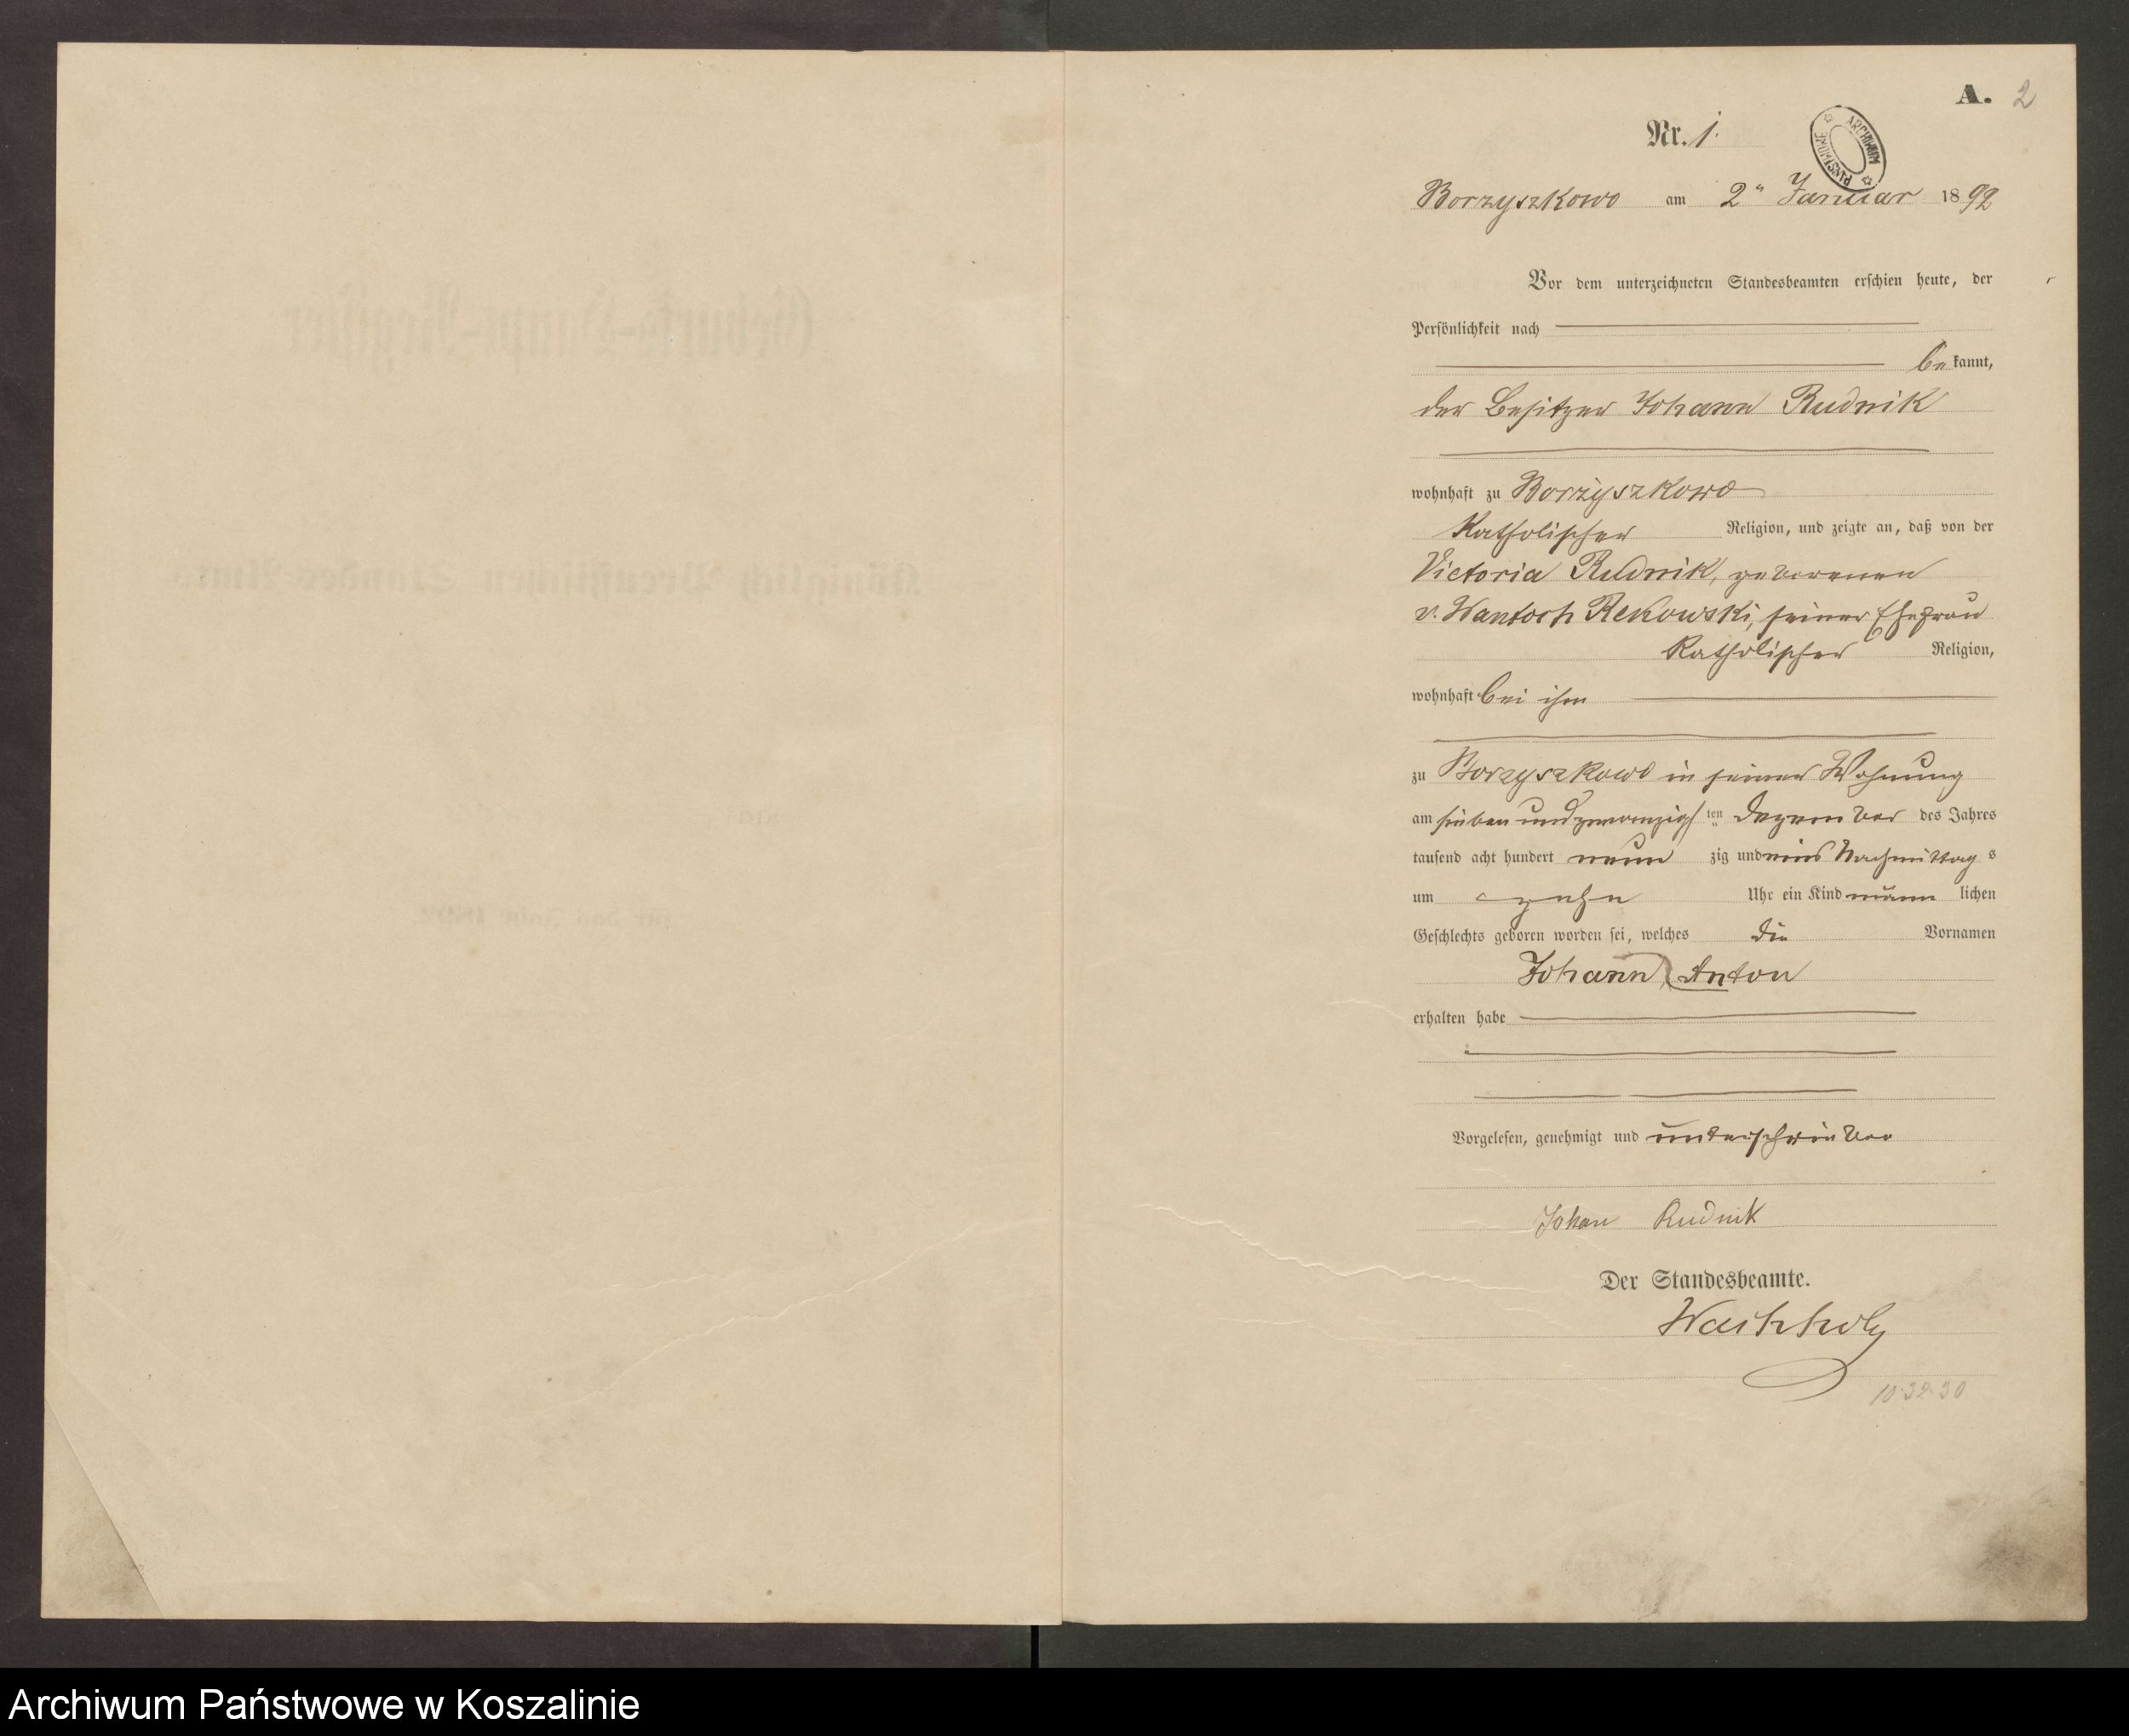 A. 2
Nr. 1.
ARCHIWUM PAŃSTWOWE
Borzyszkowo am 2ⁿ Januar 1892
Vor dem unterzeichneten Standesbeamten erschien heute, der
Persönlichkeit nach
bekannt,
der Besitzer Johann Rudnik
wohnhaft zu Borzyszkowo
Katholischer Religion, und zeigte an, daß von der
Victoria Rudnik, geborenen
v. Wantoch Rekowski, seiner Ehefrau
Katholischer Religion,
wohnhaft bei ihm
zu Borzyszkowo in seiner Wohnung
am sieben und zwanzigsten Dezember des Jahres
tausend acht hundert neunzig und eins Nachmittags
um zehn Uhr ein Kind männlichen
Geschlechts geboren worden sei, welches die Vornamen
Johann, Anton
erhalten habe
Vorgelesen, genehmigt und unterschrieben
Johan Rudnik
Der Standesbeamte.
10-32-30
Geburts-Haupt-Register.
Königlich Preußischen Standes-Amts
für das Jahr 1892.
Archiwum Państwowe w Koszalinie